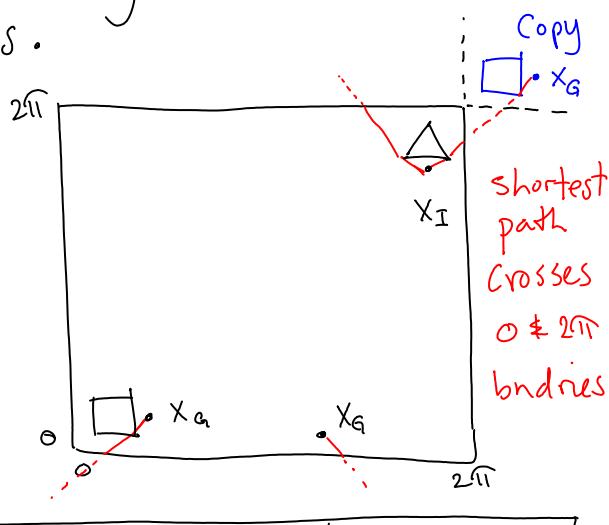 s.
Copy
X_G
2π
X_I
shortest
path
crosses
0 & 2π
bndries
X_G
X_G
0
0
2π